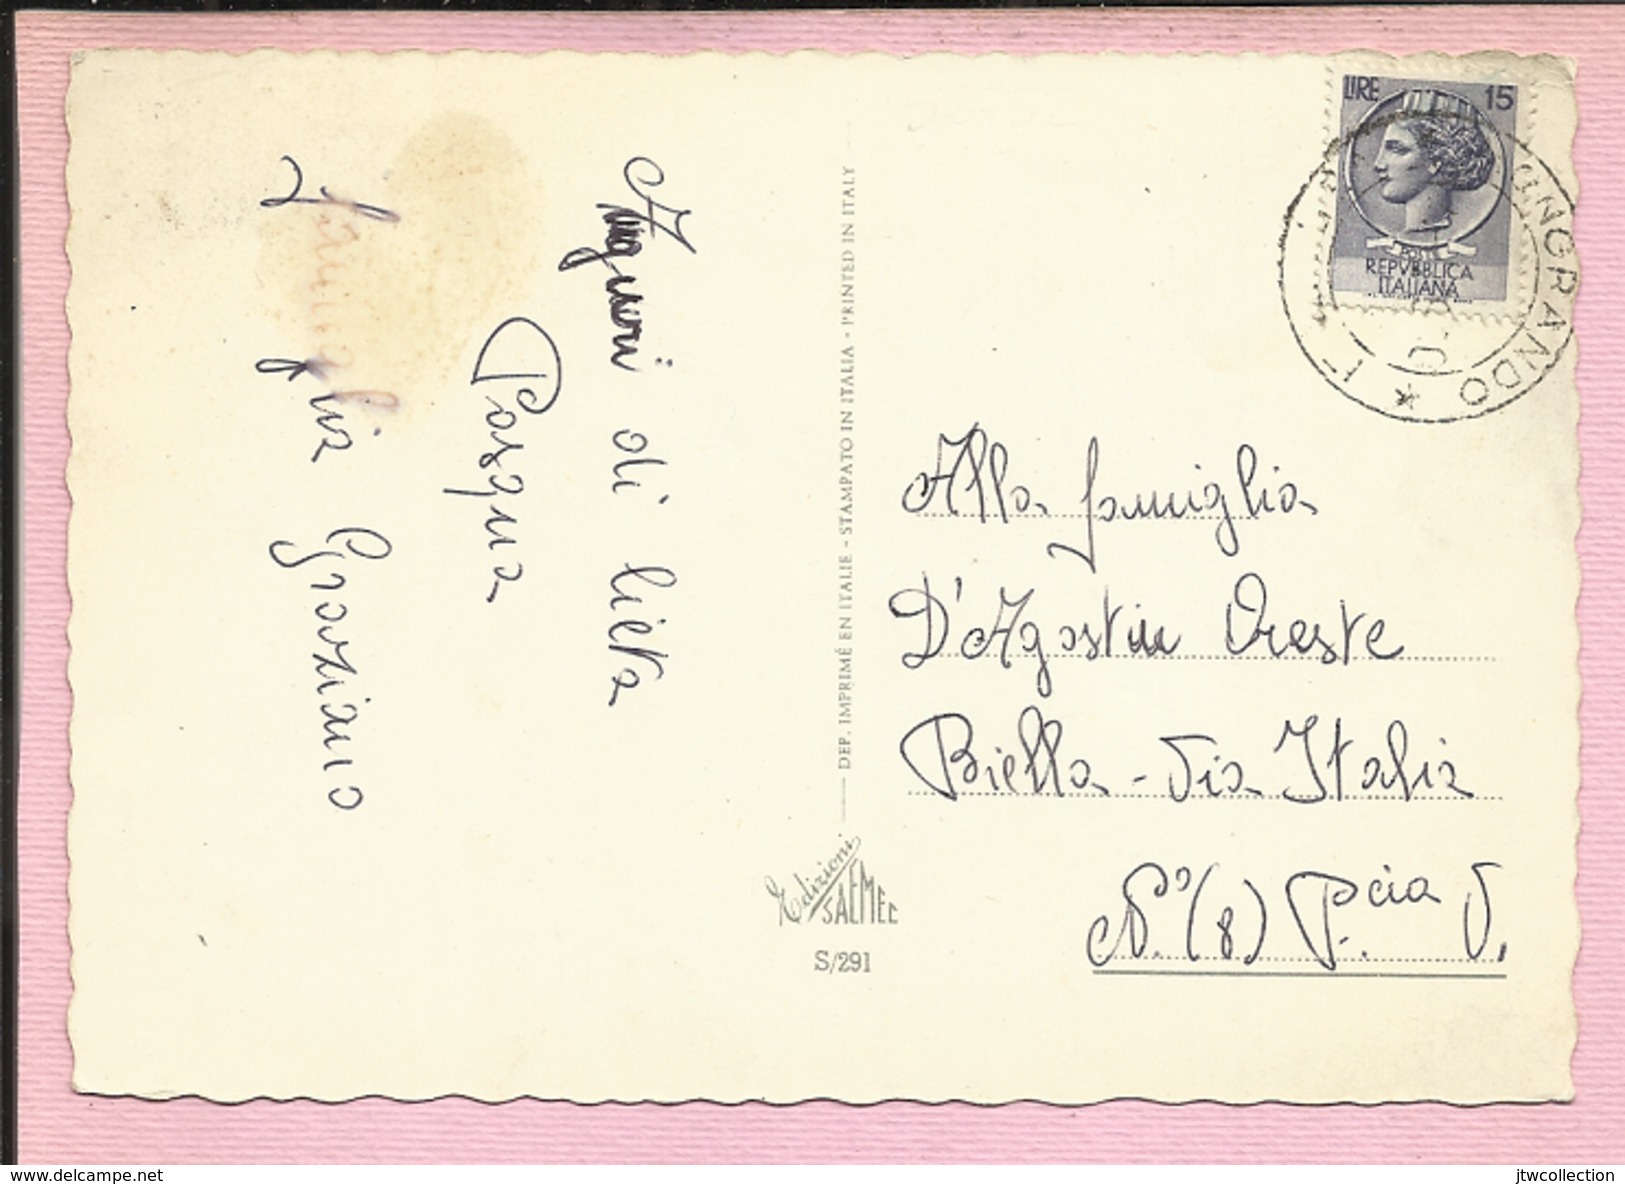 Auguri di lieta
Pasqua
famiglia Graziano
DEP. IMPRIMÉ EN ITALIE - STAMPATO IN ITALIA - PRINTED IN ITALY
Edizioni
SAEMEC
S/291
LIRE 15
POSTE
REPVBBLICA
ITALIANA
MONGRANDO *
Alla famiglia
D'Agostin Oreste
Biella - Via Italia
N.° (8) P.cia V.
www.delcampe.net
jtwcollection